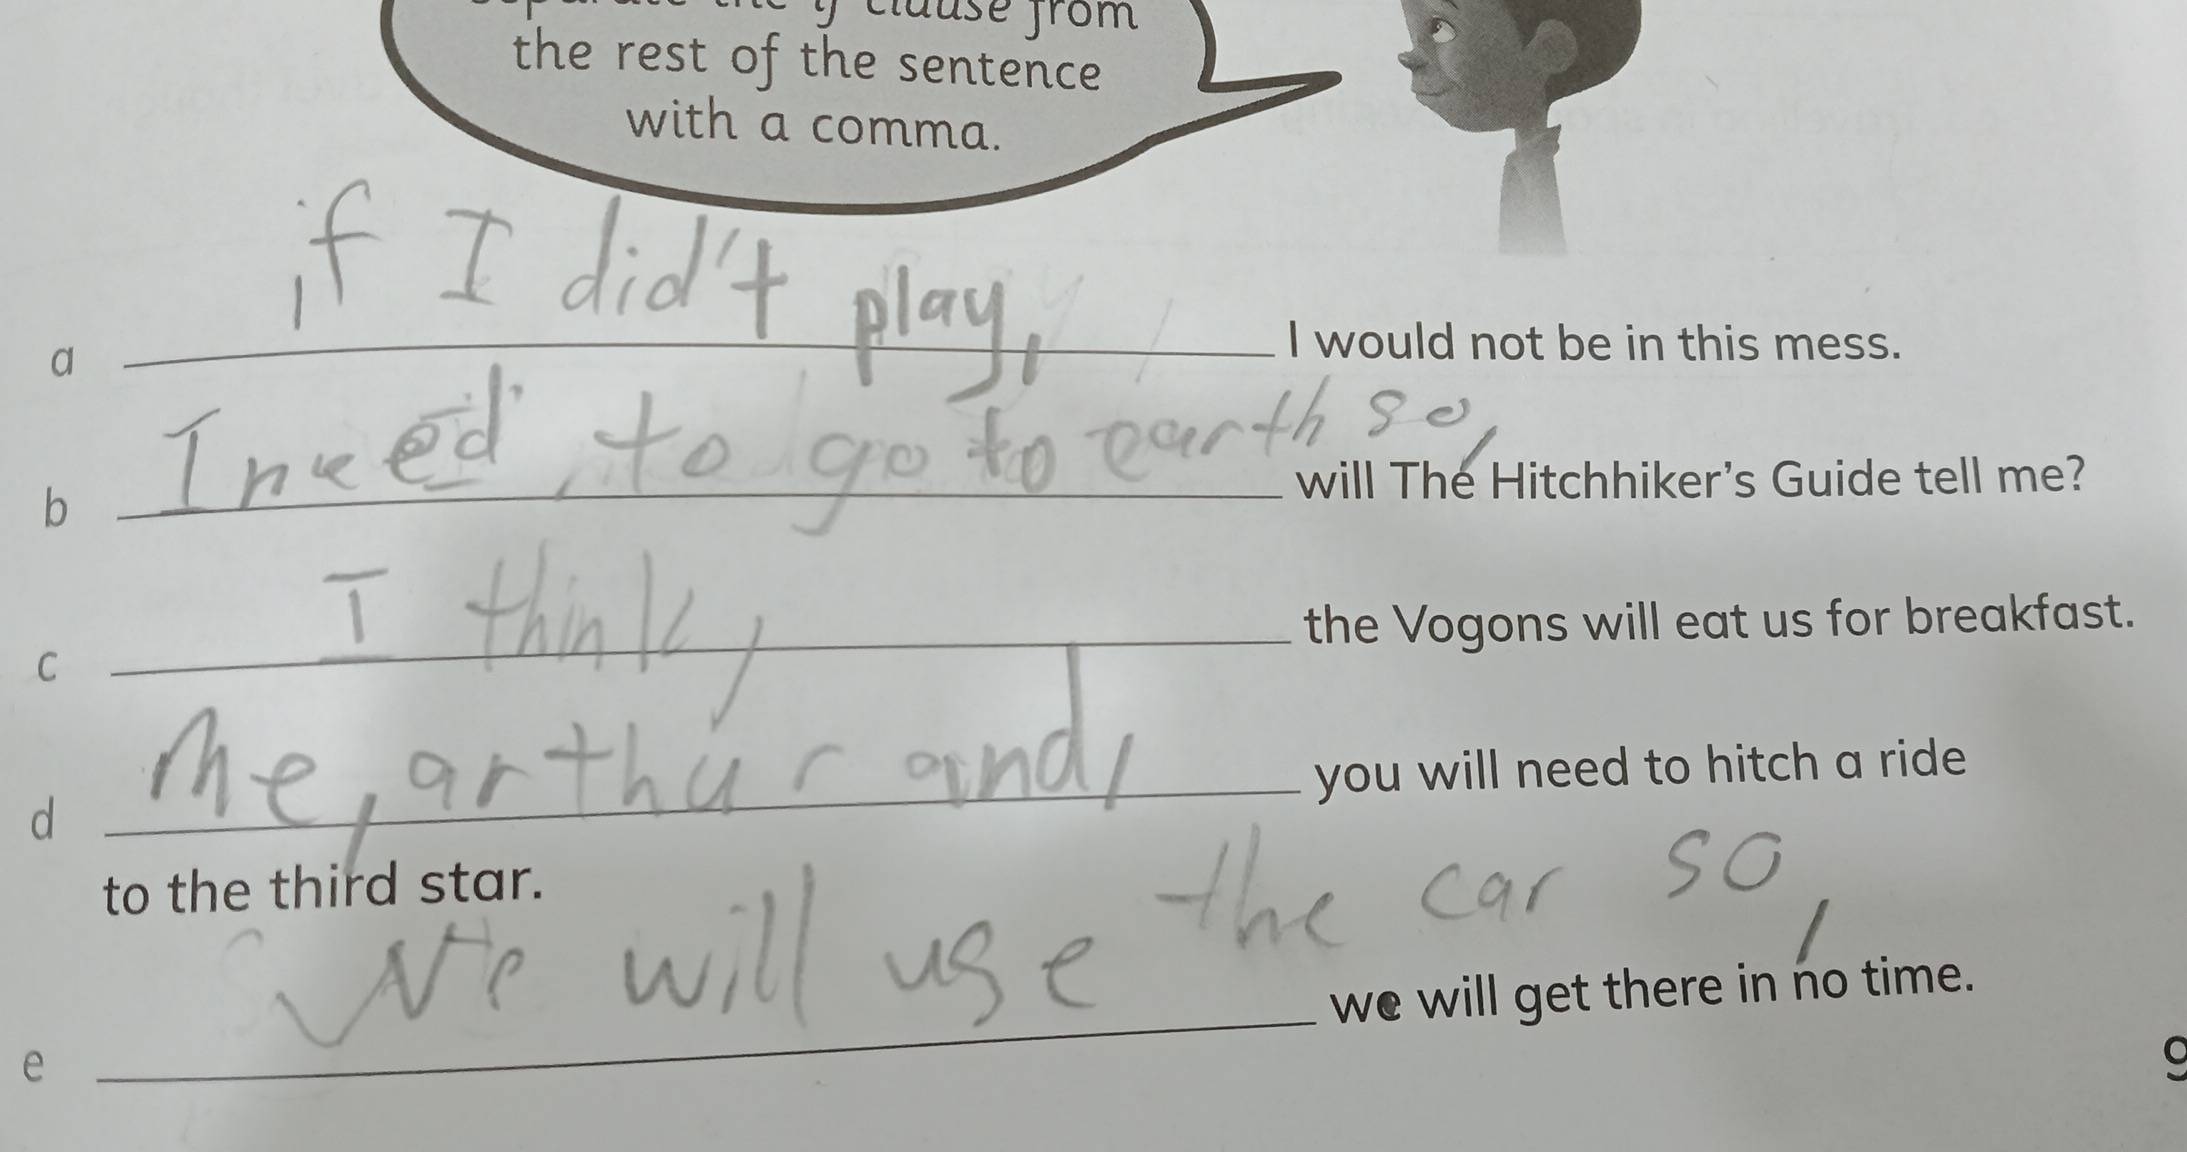 the if clause from
the rest of the sentence
with a comma.
a if I did't play, I would not be in this mess.
b I need to go to earth so, will The Hitchhiker's Guide tell me?
c I think, the Vogons will eat us for breakfast.
d Me, arthur and, you will need to hitch a ride
to the third star.
e We will use the car so, we will get there in no time.